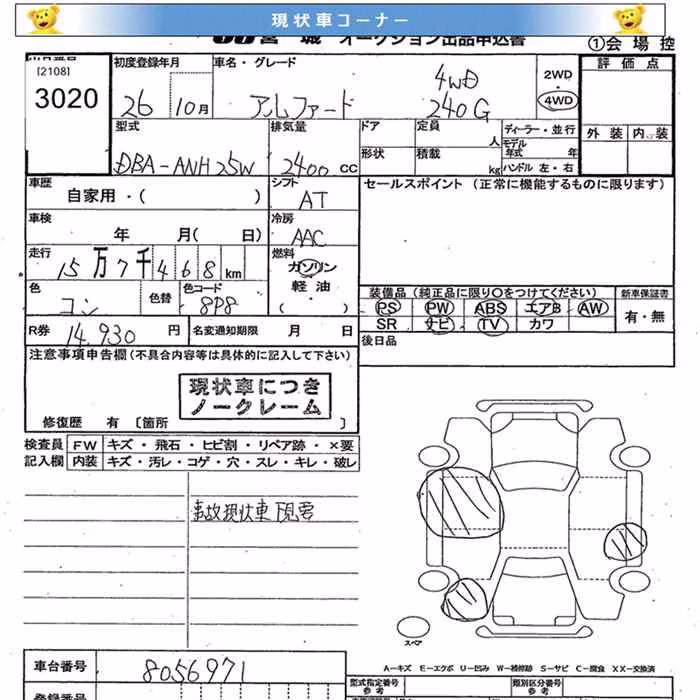 現状車コーナー
オークション出品申込書
①会場控
[2108]
3020
初度登録年月
26 10月
車名・グレード
4WD
アルファード 240G
2WD
・
4WD
評価点
外装 内装
型式
DBA-ANH25W
排気量
2400 cc
ドア
定員
人
形状
積載
kg
ディーラー・並行
モデル
年式 年
ハンドル 左・右
車歴
自家用・( )
シフト
AT
セールスポイント (正常に機能するものに限ります)
車検
年 月( 日)
冷房
AAC
走行
15万7千468km
燃料
ガソリン
軽油
( )
色
コン
色替
色コード
8P8
装備品 (純正品に限り○をつけてください)
PS PW ABS エアB AW
SR ナビ TV カワ
新車保証書
有・無
R券
14,930 円
名変通知期限 月 日
後日品
注意事項申告欄(不具合内容等は具体的に記入して下さい)
現状車につき
ノークレーム
修復歴 有 [箇所 ]
検査員 FW キズ・飛石・ヒビ割・リペア跡・×要
記入欄 内装 キズ・汚レ・コゲ・穴・スレ・キレ・破レ
事故現状車
スペア
A-キズ E-エクボ U-凹み W-補修跡 S-サビ C-腐食 XX-交換済
車台番号
8056971
型式指定番号
参考
類別区分番号
参考
登録番号